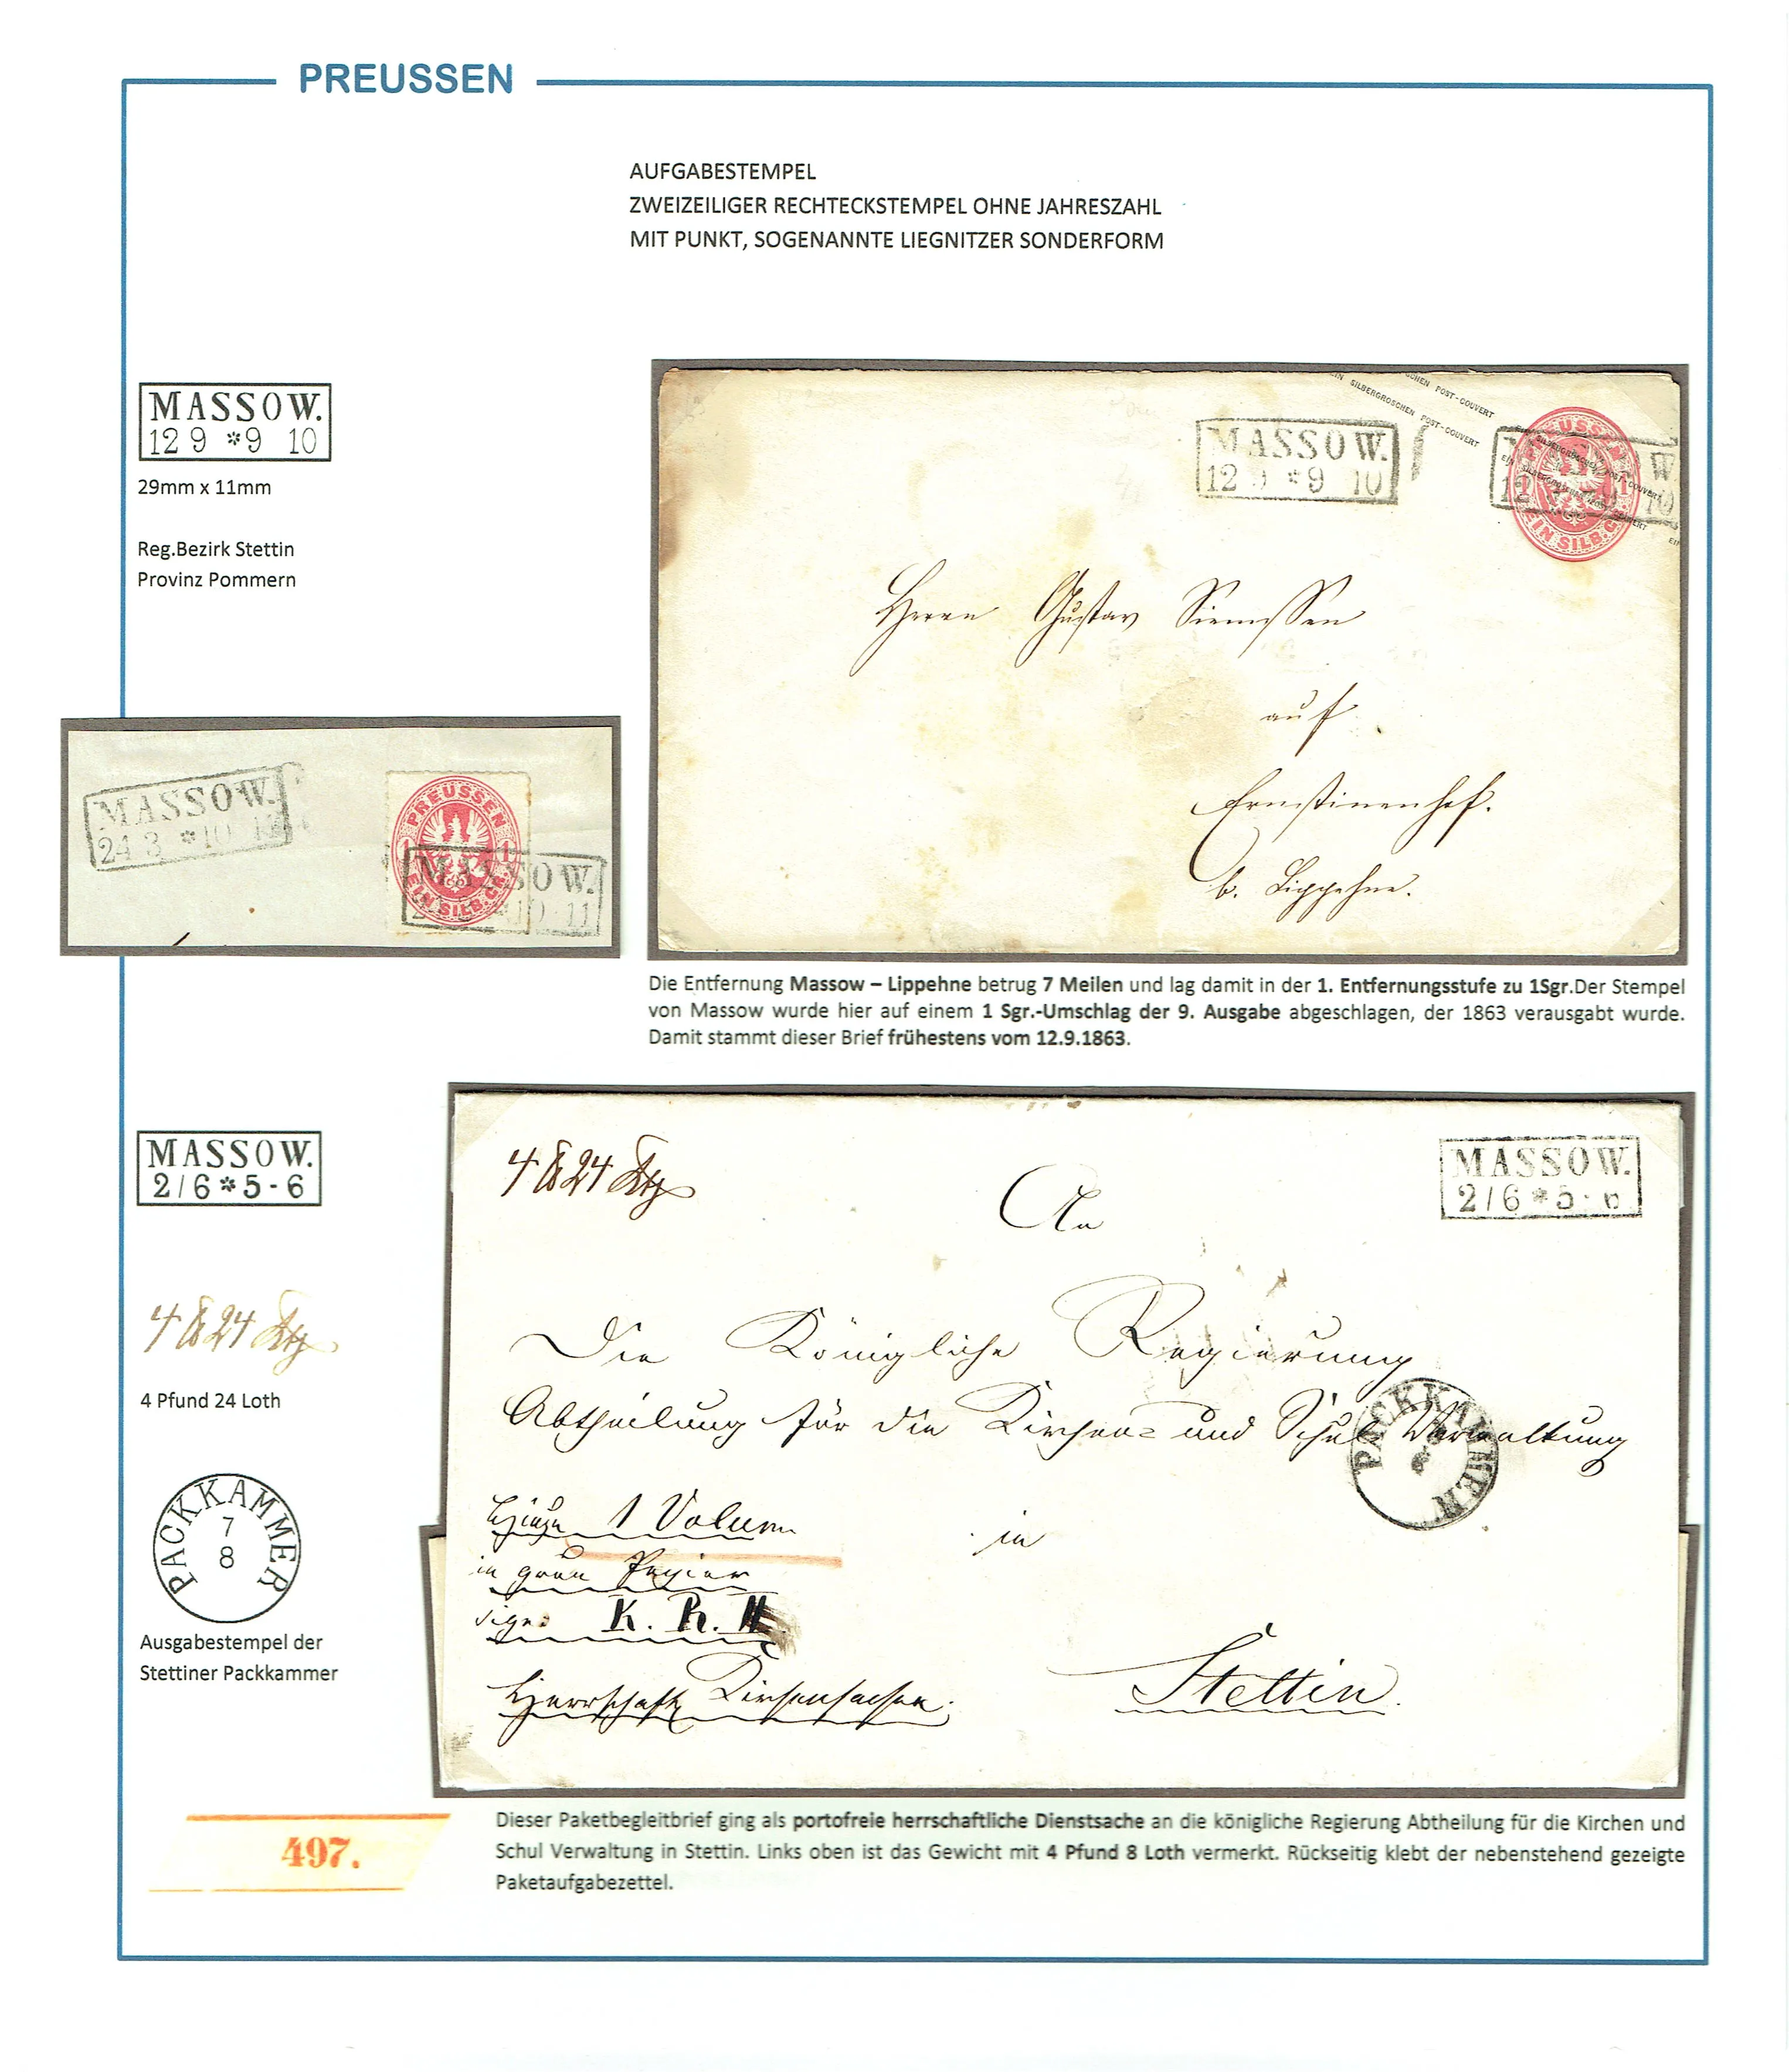 PREUSSEN
AUFGABESTEMPEL
ZWEIZEILIGER RECHTECKSTEMPEL OHNE JAHRESZAHL
MIT PUNKT, SOGENANNTE LIEGNITZER SONDERFORM
MASSOW.
12 9 * 9 10
29mm x 11mm
Reg.Bezirk Stettin
Provinz Pommern
EIN SILBERGROSCHEN POST-COUVERT
MASSOW.
12 9 * 9 10
PREUSSEN
EIN SILB. GR.
Herrn Gustav Siemssen
auf
Ernstinenhof.
b. Lippehne.
MASSOW.
24 3 * 10
PREUSSEN
1 1
EIN SILB. GR.
MASSOW.
10 11
Die Entfernung Massow – Lippehne betrug 7 Meilen und lag damit in der 1. Entfernungsstufe zu 1Sgr.Der Stempel
von Massow wurde hier auf einem 1 Sgr.-Umschlag der 9. Ausgabe abgeschlagen, der 1863 verausgabt wurde.
Damit stammt dieser Brief frühestens vom 12.9.1863.
MASSOW.
2/6 * 5 - 6
4 ℔ 24 Lth
4 Pfund 24 Loth
PACKKAMMER
7
8
Ausgabestempel der
Stettiner Packkammer
4 ℔ 24 Lth
MASSOW.
2/6 * 5 - 6
An
Die Königliche Regierung
Abtheilung für die Kirchen- und Schul Verwaltung
PACKKAMMER
Hiezu 1 Volum
in
in grau Papier
sign: K. R. M.
Stettin.
Herrschaftl Kirchensachen.
497.
Dieser Paketbegleitbrief ging als portofreie herrschaftliche Dienstsache an die königliche Regierung Abtheilung für die Kirchen und
Schul Verwaltung in Stettin. Links oben ist das Gewicht mit 4 Pfund 8 Loth vermerkt. Rückseitig klebt der nebenstehend gezeigte
Paketaufgabezettel.